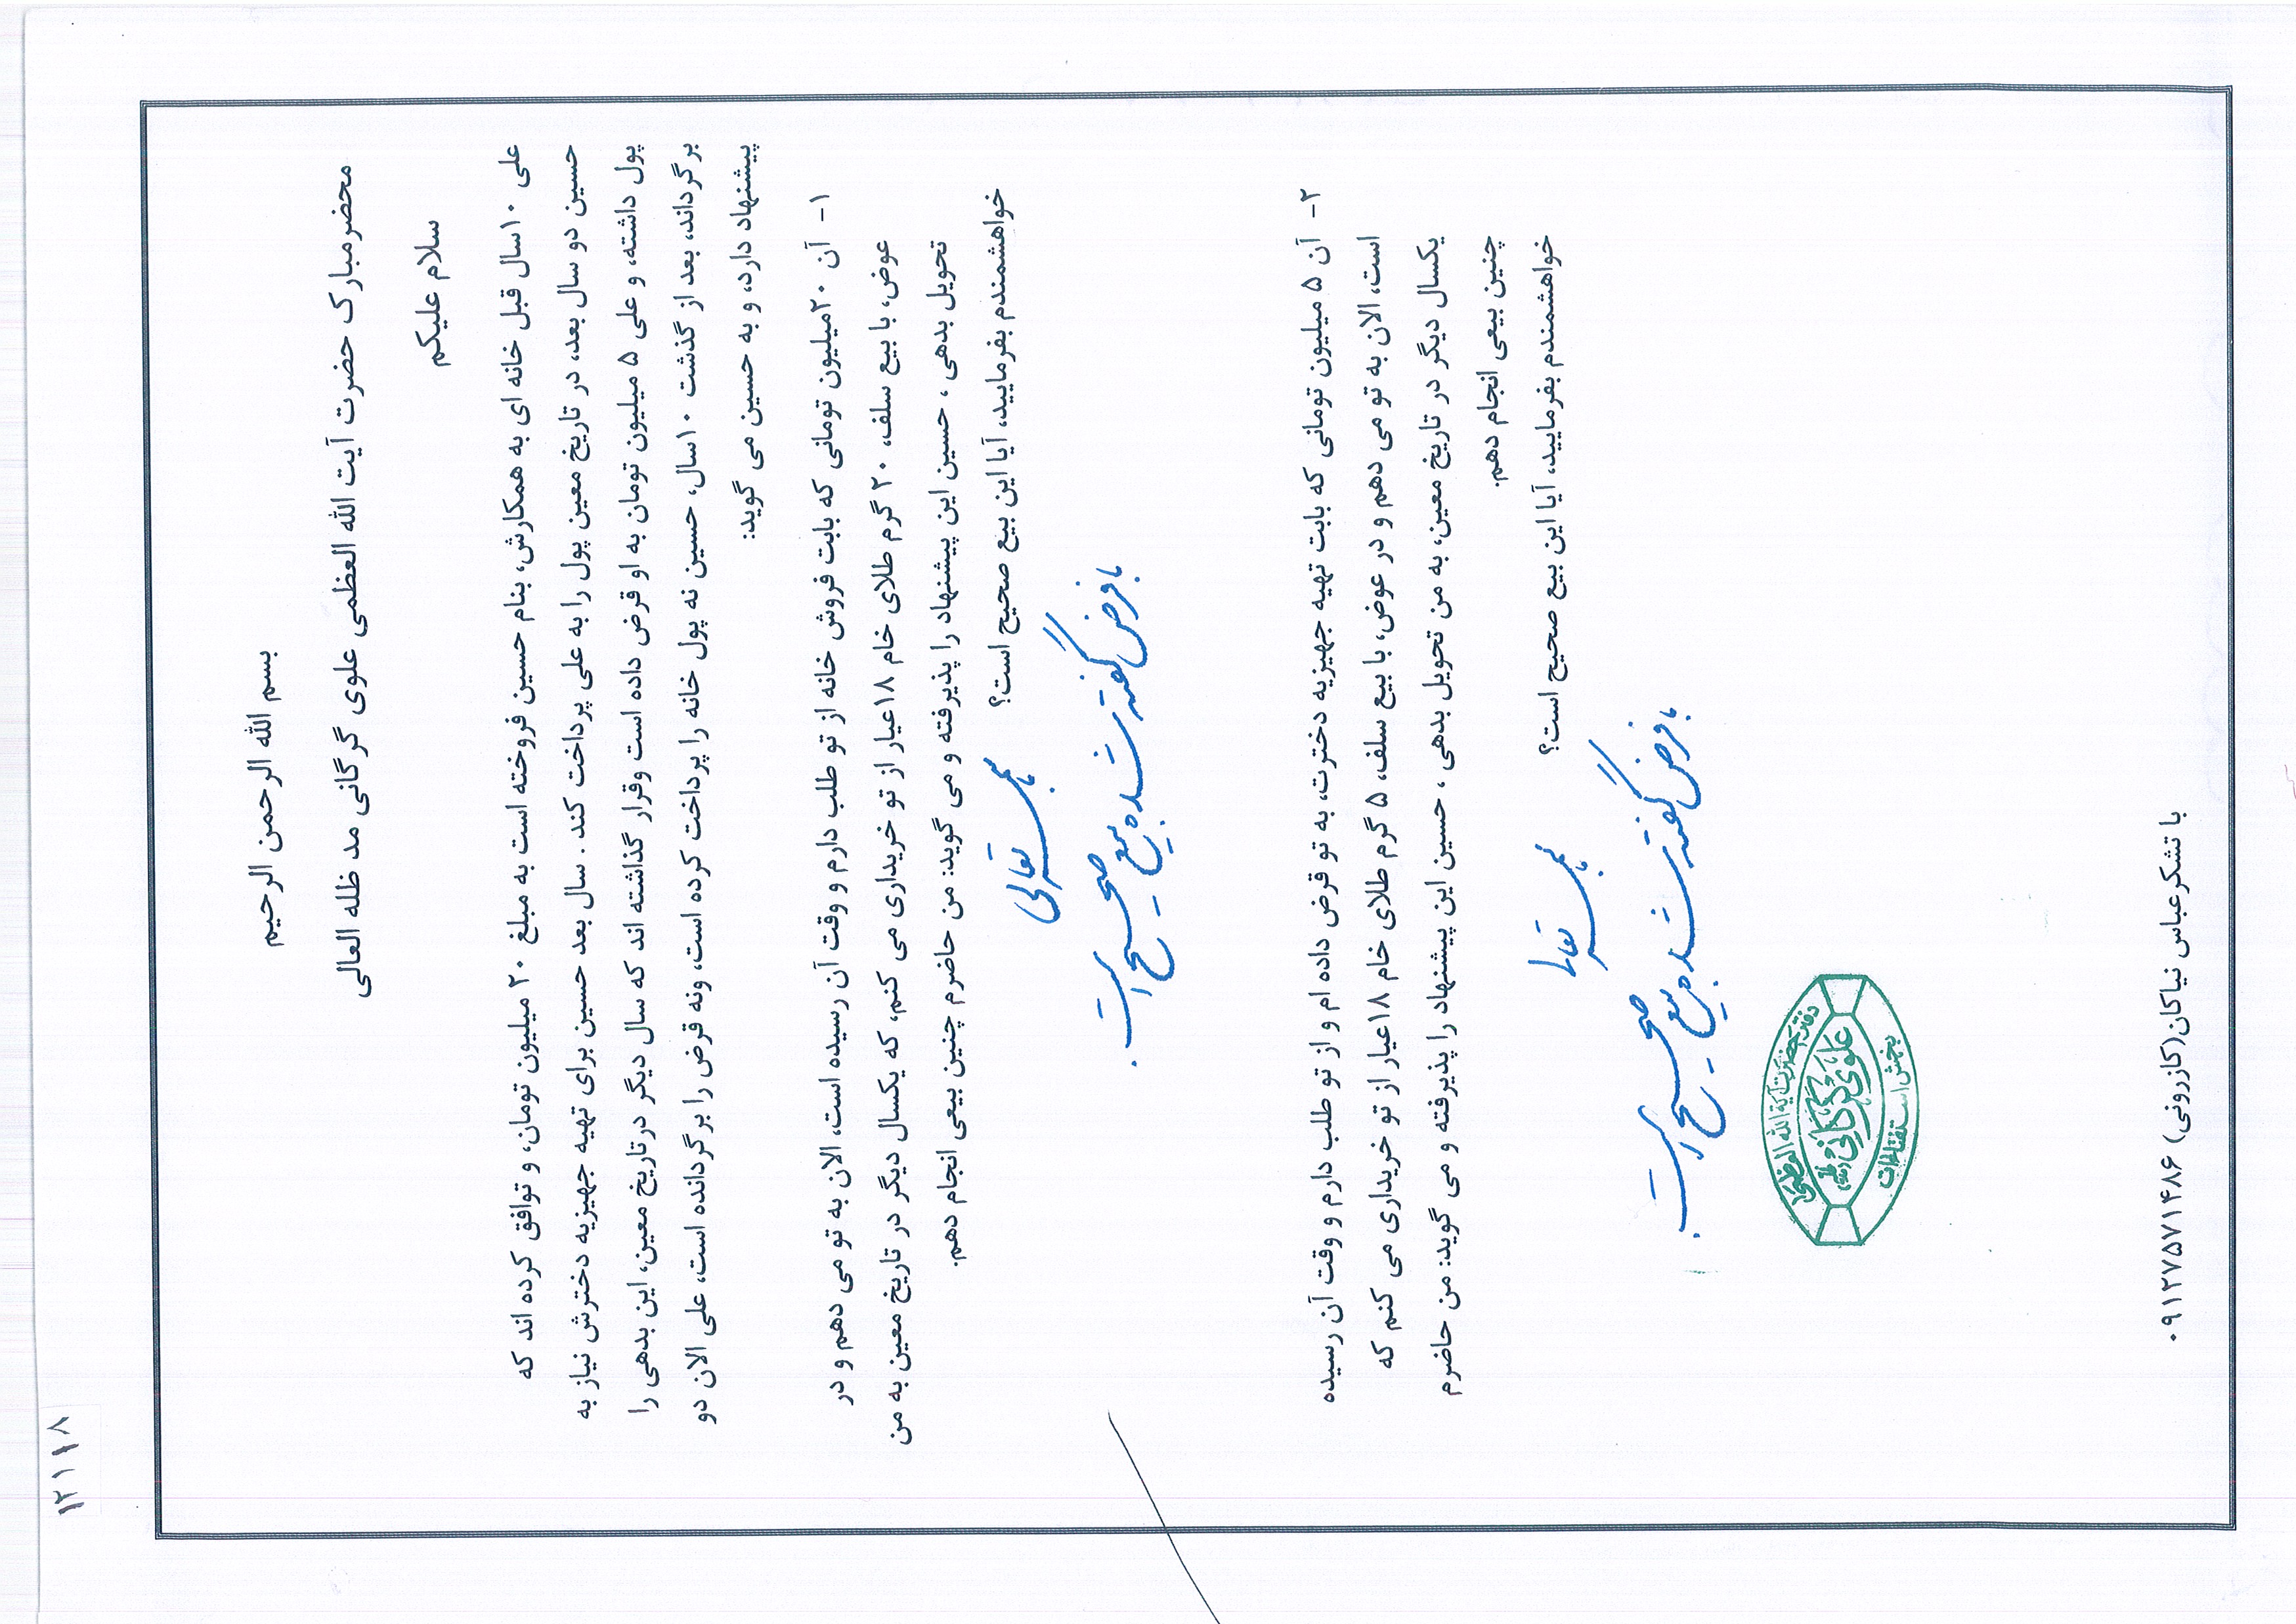 ۱۲۱۱۸
بسم الله الرحمن الرحیم
محضرمبارک حضرت آیت الله العظمی علوی گرگانی مد ظله العالی
سلام علیکم
علی ۱۰سال قبل خانه ای به همکارش، بنام حسین فروخته است به مبلغ ۲۰ میلیون تومان، و توافق کرده اند که
حسین دو سال بعد، در تاریخ معین پول را به علی پرداخت کند. سال بعد حسین برای تهیه جهیزیه دخترش نیاز به
پول داشته، و علی ۵ میلیون تومان به او قرض داده است وقرار گذاشته اند که سال دیگر درتاریخ معین، این بدهی را
برگرداند، بعد از گذشت ۱۰سال، حسین نه پول خانه را پرداخت کرده است، ونه قرض را برگردانده است، علی الان دو
پیشنهاد دارد، و به حسین می گوید:
۱- آن ۲۰میلیون تومانی که بابت فروش خانه از تو طلب دارم و وقت آن رسیده است، الان به تو می دهم و در
عوض، با بیع سلف، ۲۰ گرم طلای خام ۱۸عیار از تو خریداری می کنم، که یکسال دیگر در تاریخ معین به من
تحویل بدهی ، حسین این پیشنهاد را پذیرفته و می گوید: من حاضرم چنین بیعی انجام دهم.
خواهشمندم بفرمایید، آیا این بیع صحیح است؟
بسمه تعالی
با فرض گفته شده بیع صحیح است.
۲- آن ۵ میلیون تومانی که بابت تهیه جهیزیه دخترت، به تو قرض داده ام و از تو طلب دارم و وقت آن رسیده
است، الان به تو می دهم و در عوض، با بیع سلف، ۵ گرم طلای خام ۱۸عیار از تو خریداری می کنم که
یکسال دیگر در تاریخ معین، به من تحویل بدهی ، حسین این پیشنهاد را پذیرفته و می گوید: من حاضرم
چنین بیعی انجام دهم.
خواهشمندم بفرمایید، آیا این بیع صحیح است؟
بسمه تعالی
با فرض گفته شده بیع صحیح است.
دفتر حضرت آیة الله العظمی
علوی گرگانی
بخش استفتائات
با تشکرعباس نیاکان(کازرونی) ۰۹۱۲۷۵۷۱۴۸۶